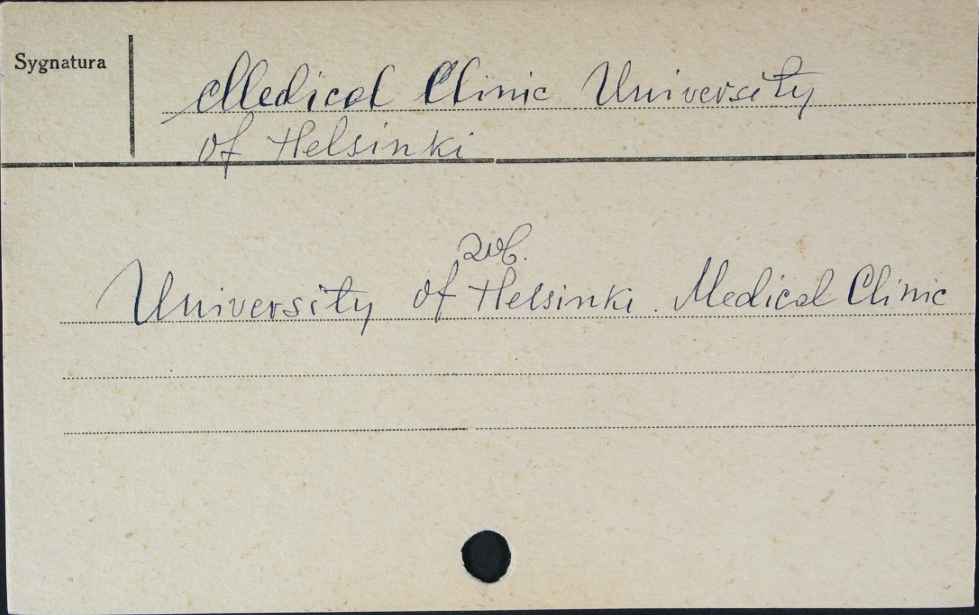 Sygnatura
Medical Clinic University
of Helsinki
zob.
University of Helsinki. Medical Clinic